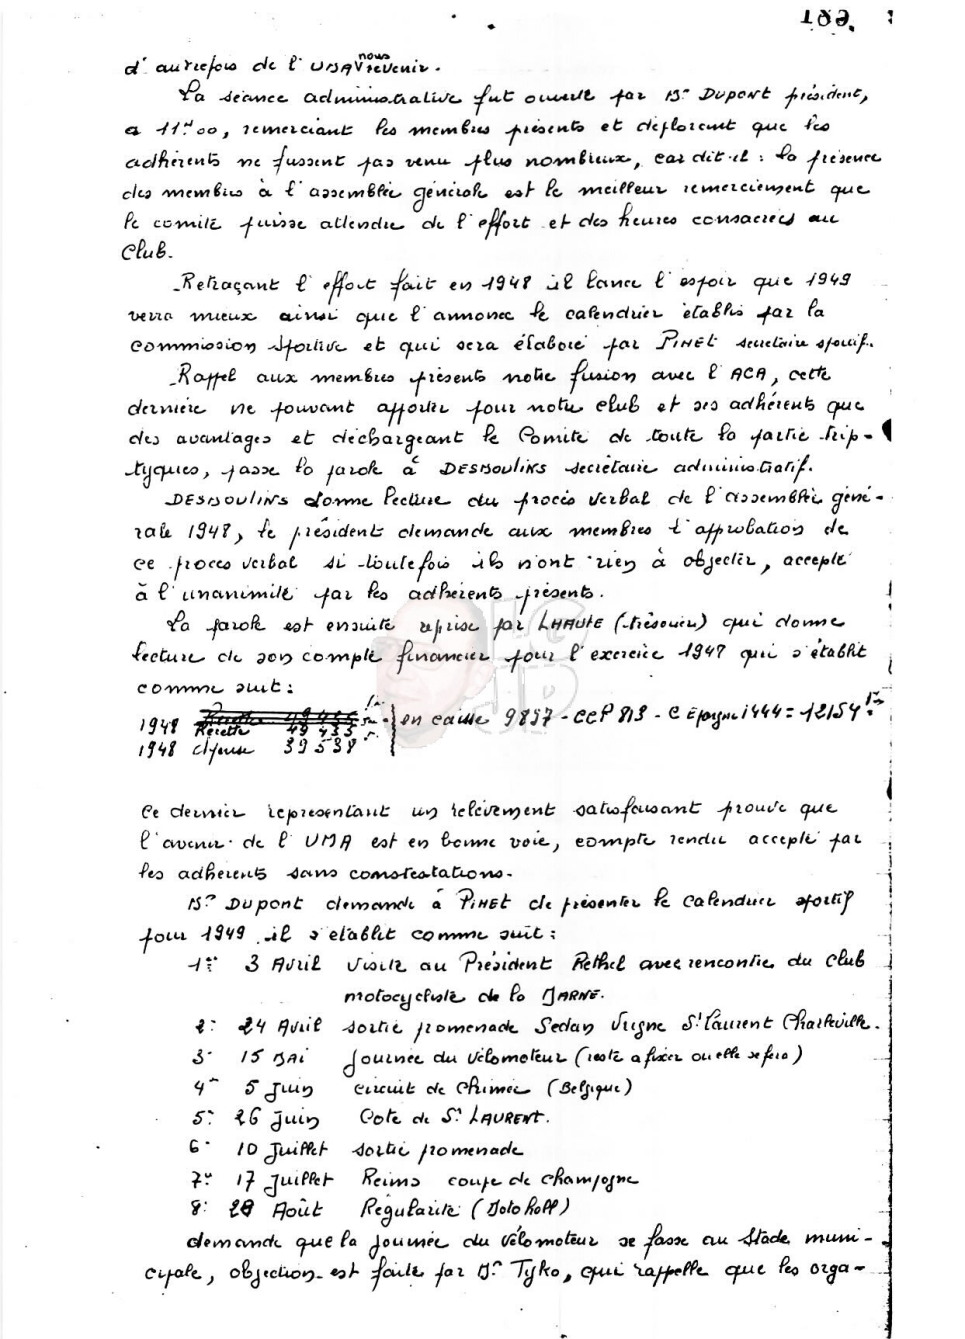 189.
d'autrefois de l'UMA nous revenir.
La séance administrative fut ouverte par Mr DUPONT président,
a 11H00, remerciant les membres présents et déplorant que les
adhérents ne fussent pas venu plus nombreux, car dit-il : la présence
des membres à l'assemblée générale est le meilleur remerciement que
le comité puisse attendre de l'effort et des heures consacrées au
Club.
Retraçant l'effort fait en 1948 il lance l'espoir que 1949
verra mieux ainsi que l'annonce le calendrier établis par la
commission sportive et qui sera élaboré par PINET secretaire sportif.
Rappel aux membres présents notre fusion avec l'ACA, cette
dernière ne pouvant apporter pour notre club et ses adhérents que
des avantages et déchargeant le Comité de toute la partie trip-
tyques, passe la parole à DESMOULINS secrétaire administratif.
DESMOULINS donne lecture du procès verbal de l'assemblée géné-
rale 1948, le président demande aux membres l'approbation de
ce procès verbal si toutefois ils n'ont rien à objecter, accepté
à l'unanimité par les adhérents présents.
La parole est ensuite reprise par LHAUTE (trésorier) qui donne
lecture de son compte financier pour l'exercice 1947 qui s'établit
comme suit :
1948 Recette 49 435 en caisse 9857 - CCP 813 - C Epargne 1444 = 12154
1948 dépense 39 538
Ce dernier représentant un relèvement satisfaisant prouve que
l'avenir de l'UMA est en bonne voie, compte rendu accepté par
les adhérents sans constestations.
Mr DUPONT demande à PINET de présenter le calendrier sportif
pour 1949 il s'établit comme suit :
1er 3 Avril Visite au Président Rethel avec rencontre du club
motocycliste de la MARNE.
2: 24 Avril sortie promenade Sedan Vrigne St Laurent Charleville.
3 15 MAI Journée du vélomoteur (reste a fixer ou elle se fera)
4 5 Juin circuit de Chimée (Belgique)
5: 26 Juin Cote de St LAURENT.
6 10 Juillet sortie promenade
7 17 Juillet Reims coupe de champagne
8: 28 Août Régularité (Moto Ball)
demande que la journée du vélomoteur se fasse au Stade muni-
cipale, objection est faite par Mr Tyko, qui rappelle que les orga-